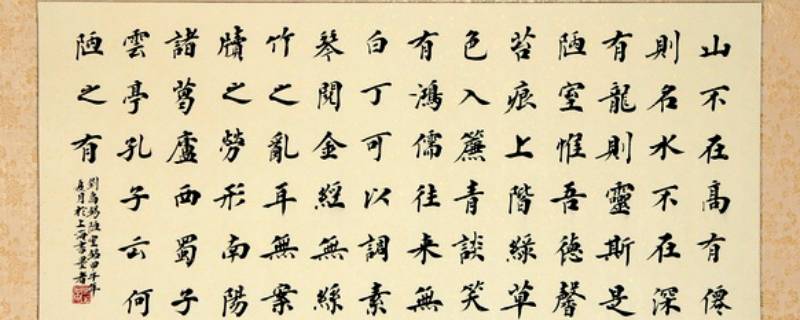 山不在高有僊
則名水不在深
有龍則靈斯是
陋室惟吾德馨
苔痕上階綠草
色入簾青談笑
有鴻儒往來無
白丁可以調素
琴閱金經無絲
竹之亂耳無案
牘之勞形南陽
諸葛廬西蜀子
雲亭孔子云何
陋之有
劉禹錫陋室銘甲午年
月於上海書